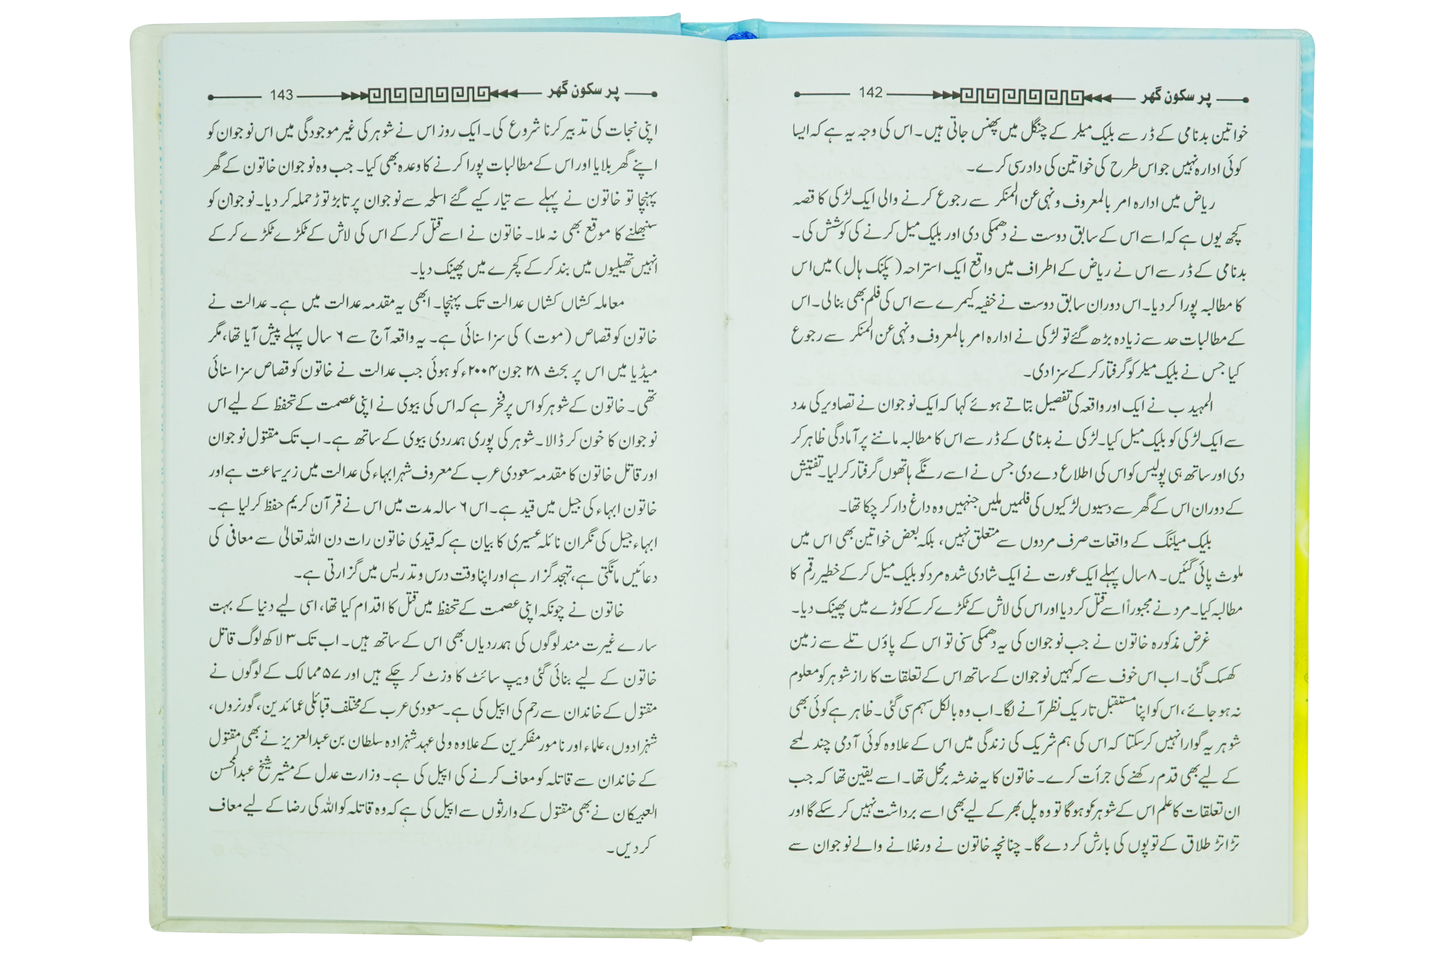 پر سکون گھر 142
خواتین بدنامی کے ڈر سے بلیک میلر کے چنگل میں پھنس جاتی ہیں۔ اس کی وجہ یہ ہے کہ ایسا
کوئی ادارہ نہیں جو اس طرح کی خواتین کی دادرسی کرے۔
ریاض میں ادارہ امر بالمعروف ونہی عن المنکر سے رجوع کرنے والی ایک لڑکی کا قصہ
کچھ یوں ہے کہ اسے اس کے سابق دوست نے دھمکی دی اور بلیک میل کرنے کی کوشش کی۔
بدنامی کے ڈر سے اس نے ریاض کے اطراف میں واقع ایک استراحہ (پکنک ہال) میں اس
کا مطالبہ پورا کر دیا۔ اس دوران سابق دوست نے خفیہ کیمرے سے اس کی فلم بھی بنالی۔ اس
کے مطالبات حد سے زیادہ بڑھ گئے تو لڑکی نے ادارہ امر بالمعروف ونہی عن المنکر سے رجوع
کیا جس نے بلیک میلر کو گرفتار کر کے سزا دی۔
المہیدب نے ایک اور واقعہ کی تفصیل بتاتے ہوئے کہا کہ ایک نوجوان نے تصاویر کی مدد
سے ایک لڑکی کو بلیک میل کیا۔ لڑکی نے بدنامی کے ڈر سے اس کا مطالبہ ماننے پر آمادگی ظاہر کر
دی اور ساتھ ہی پولیس کو اس کی اطلاع دے دی جس نے اسے رنگے ہاتھوں گرفتار کر لیا۔ تفتیش
کے دوران اس کے گھر سے دسیوں لڑکیوں کی فلمیں ملیں جنہیں وہ داغ دار کر چکا تھا۔
بلیک میلنگ کے واقعات صرف مردوں سے متعلق نہیں، بلکہ بعض خواتین بھی اس میں
ملوث پائی گئیں۔ ۸ سال پہلے ایک عورت نے ایک شادی شدہ مرد کو بلیک میل کر کے خطیر رقم کا
مطالبہ کیا۔ مرد نے مجبوراً اسے قتل کر دیا اور اس کی لاش کے ٹکڑے کر کے کوڑے میں پھینک دیا۔
غرض مذکورہ خاتون نے جب نوجوان کی یہ دھمکی سنی تو اس کے پاؤں تلے سے زمین
کھسک گئی۔ اب اس خوف سے کہ کہیں نوجوان کے ساتھ اس کے تعلقات کا راز شوہر کو معلوم
نہ ہو جائے، اس کو اپنا مستقبل تاریک نظر آنے لگا۔ اب وہ بالکل سہم سی گئی۔ ظاہر ہے کوئی بھی
شوہر یہ گوارا نہیں کرسکتا کہ اس کی ہم شریک کی زندگی میں اس کے علاوہ کوئی آدمی چند لمحے
کے لیے بھی قدم رکھنے کی جرأت کرے۔ خاتون کا یہ خدشہ برمحل تھا۔ اسے یقین تھا کہ جب
ان تعلقات کا علم اس کے شوہر کو ہوگا تو وہ پل بھر کے لیے بھی اسے برداشت نہیں کر سکے گا اور
تڑاتڑ طلاق کے توپوں کی بارش کر دے گا۔ چنانچہ خاتون نے ورغلانے والے نوجوان سے
پر سکون گھر 143
اپنی نجات کی تدبیر کرنا شروع کی۔ ایک روز اس نے شوہر کی غیر موجودگی میں اس نوجوان کو
اپنے گھر بلایا اور اس کے مطالبات پورا کرنے کا وعدہ بھی کیا۔ جب وہ نوجوان خاتون کے گھر
پہنچا تو خاتون نے پہلے سے تیار کیے گئے اسلحہ سے نوجوان پر تابڑ توڑ حملہ کر دیا۔ نوجوان کو
سنبھلنے کا موقع بھی نہ ملا۔ خاتون نے اسے قتل کر کے اس کی لاش کے ٹکڑے ٹکڑے کر کے
انہیں تھیلیوں میں بند کر کے کچرے میں پھینک دیا۔
معاملہ کشاں کشاں عدالت تک پہنچا۔ ابھی یہ مقدمہ عدالت میں ہے۔ عدالت نے
خاتون کو قصاص (موت) کی سزا سنائی ہے۔ یہ واقعہ آج سے ۶ سال پہلے پیش آیا تھا، مگر
میڈیا میں اس پر بحث ۲۸ جون ۲۰۰۴ء کو ہوئی جب عدالت نے خاتون کو قصاص سزا سنائی
تھی۔ خاتون کے شوہر کو اس پر فخر ہے کہ اس کی بیوی نے اپنی عصمت کے تحفظ کے لیے اس
نوجوان کا خون کر ڈالا۔ شوہر کی پوری ہمدردی بیوی کے ساتھ ہے۔ اب تک مقتول نوجوان
اور قاتل خاتون کا مقدمہ سعودی عرب کے معروف شہر ابہاء کی عدالت میں زیر سماعت ہے اور
خاتون ابہاء کی جیل میں قید ہے۔ اس ۶ سالہ مدت میں اس نے قرآن کریم حفظ کر لیا ہے۔
ابہاء جیل کی نگران نائلہ عسیری کا بیان ہے کہ قیدی خاتون رات دن اللہ تعالیٰ سے معافی کی
دعائیں مانگتی ہے، تہجد گزار ہے اور اپنا وقت درس وتدریس میں گزارتی ہے۔
خاتون نے چونکہ اپنی عصمت کے تحفظ میں قتل کا اقدام کیا تھا، اسی لیے دنیا کے بہت
سارے غیرت مند لوگوں کی ہمدردیاں بھی اس کے ساتھ ہیں۔ اب تک ۳ لاکھ لوگ قاتل
خاتون کے لیے بنائی گئی ویب سائٹ کا وزٹ کر چکے ہیں اور ۵۷ ممالک کے لوگوں نے
مقتول کے خاندان سے رحم کی اپیل کی ہے۔ سعودی عرب کے مختلف قبائلی عمائدین، گورنروں،
شہزادوں، علماء اور نامور مفکرین کے علاوہ ولی عہد شہزادہ سلطان بن عبدالعزیز نے بھی مقتول
کے خاندان سے قاتلہ کو معاف کرنے کی اپیل کی ہے۔ وزارت عدل کے مشیر شیخ عبدالمحسن
العبیکان نے بھی مقتول کے وارثوں سے اپیل کی ہے کہ وہ قاتلہ کو اللہ کی رضا کے لیے معاف
کر دیں۔